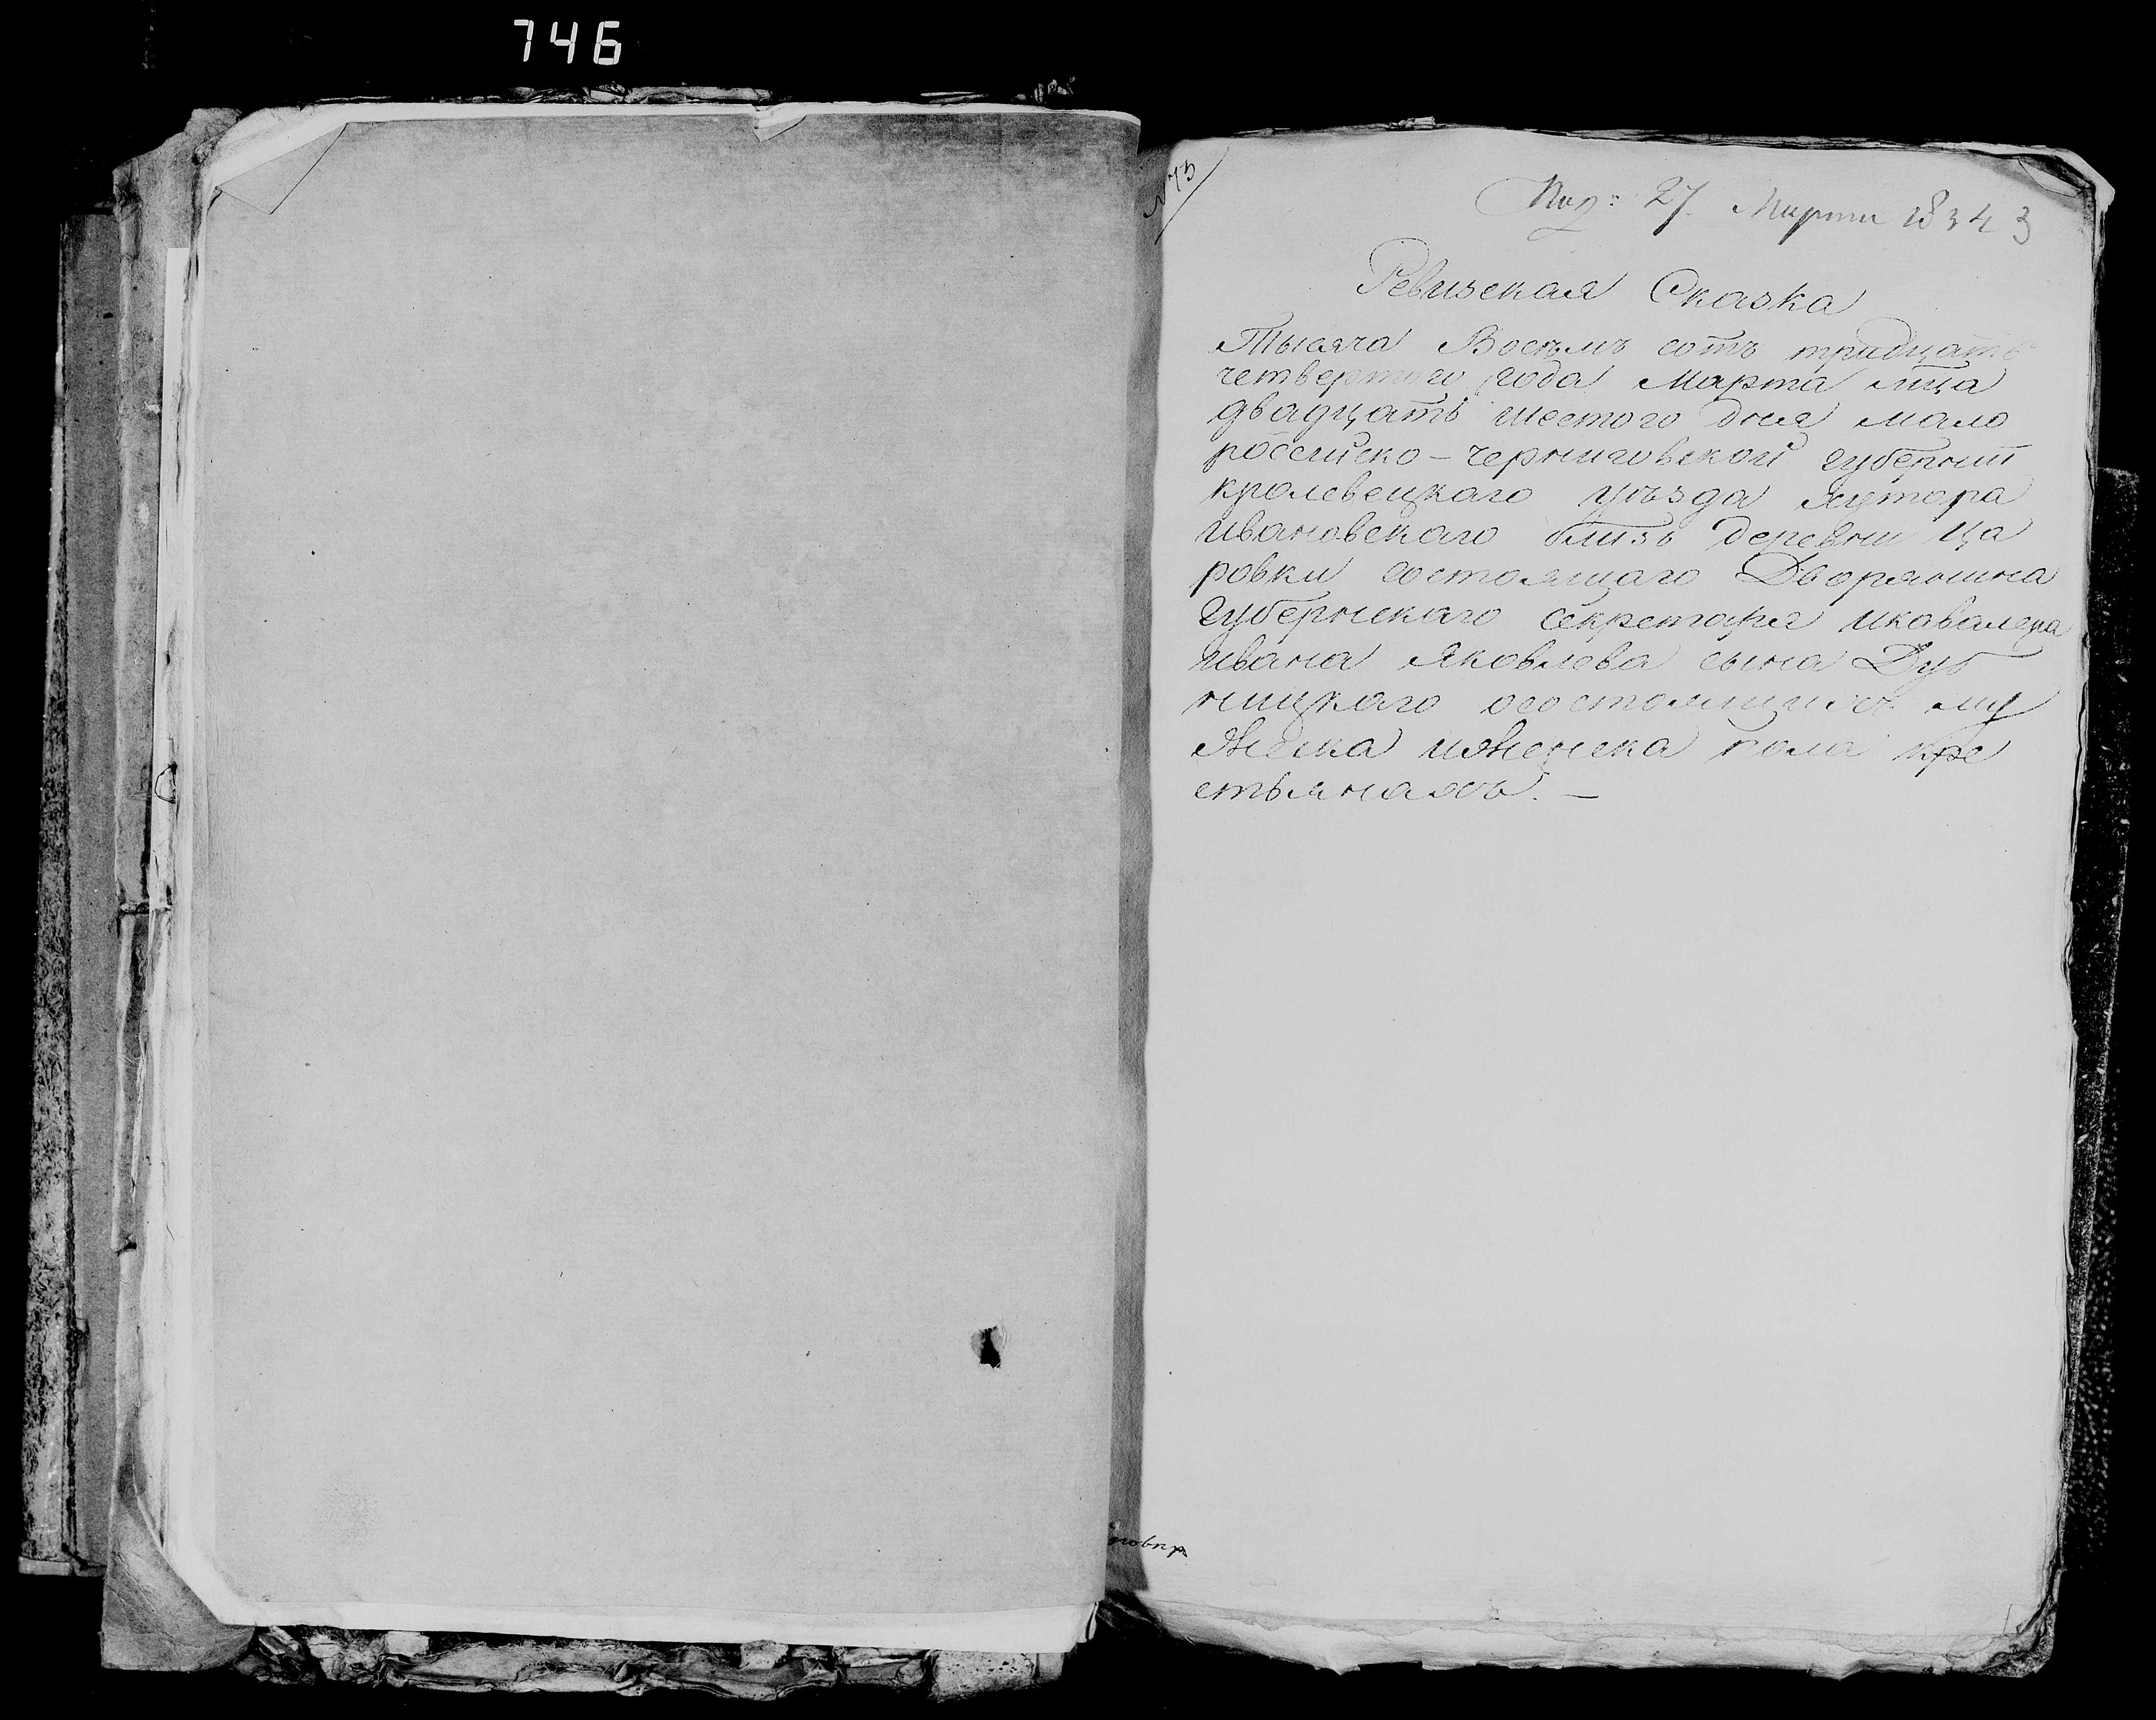 746
№ 73
Пол: 27. Марта 1834 3
Ревизская Сказка
Тысяча Восемъ сотъ тридцать
четвертого года Марта мца
двадцать шестого дня мало
россійско-черниговской губерніи
кролевецкаго уѣзда хутора
ивановского близь деревни Ца
ровки состоящаго Дворянина
Губернскаго секретаря икавалера
ивана Яковлева сына Дуб
ницкаго осостоящихъ му
жеска иженска пола кре
стьянахъ. —